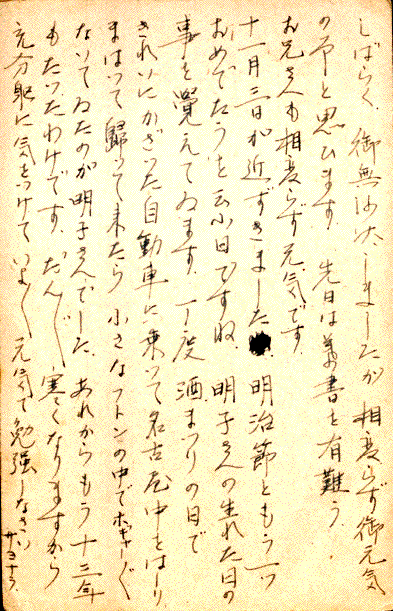 しばらく御無沙汰しましたが相変らず御元気
の事と思ひます 先日は葉書を有難う.
お兄さんも相変らず元気です
十一月三日が近ずきました 明治節ともう一つ
おめでたうを云ふ日ですね 明子さんの生れた日の
事を覺えてゐます. 丁度 酒まつりの日で
きれいにかざった自動車に乗って名古屋中をはしり
まはって歸って来たら 小さなフトンの中でホギャー〳〵
ないてゐたのが明子さんでした あれからもう十三年
もたったわけです. だん〳〵寒くなりますから
充分躰に気をつけて いよ〳〵元気で勉強しなさい
サヨナラ